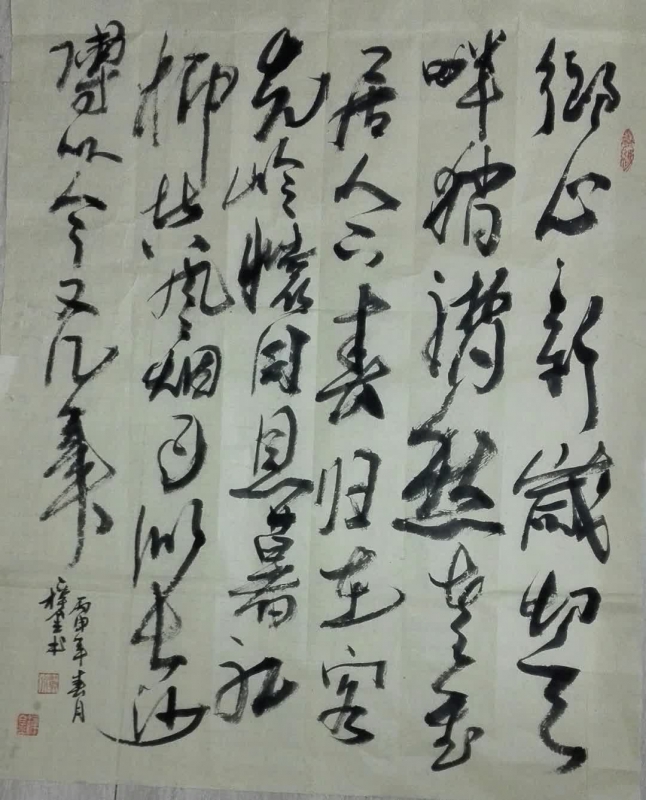 鄉心新歲切天
畔獨潸然老至
居人下春归在客
先岭猿同旦暮江
柳共风烟已似长沙
傅从今又几年
丙申年春月